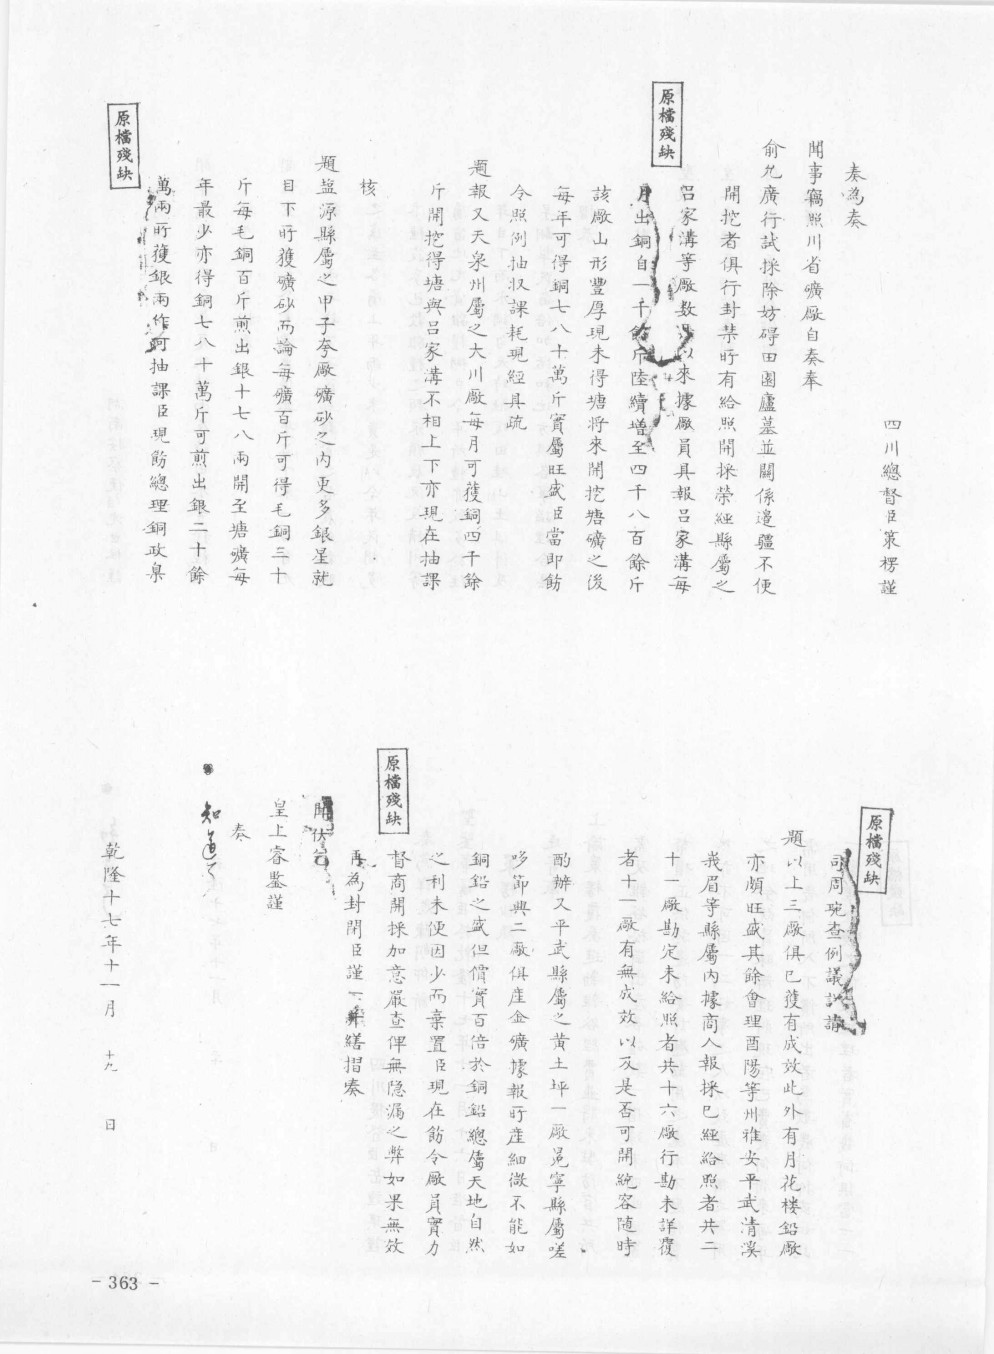 四川總督臣策楞謹
奏為奏
聞事竊照川省礦廠自奏奉
俞允廣行試採除妨碍田園廬墓並關係邊疆不便
開挖者俱行封禁所有給照開採榮經縣屬之
呂家溝等廠數以來據廠員具報呂家溝每
原檔殘缺
月出銅自一千餘斤陸續增至四千八百餘斤
該廠山形豐厚現未得塘將來開挖塘礦之後
每年可得銅七八十萬斤實屬旺盛臣當即飭
令照例抽收課耗現經具疏
題報又天泉州屬之大川廠每月可獲銅四千餘
斤開挖得塘與呂家溝不相上下亦現在抽課
核
題盐源縣屬之甲子夸廠礦砂之內更多銀星就
目下所獲礦砂而論每礦百斤可得毛銅三十
斤每毛銅百斤煎出銀十七八兩開至塘礦每
年最少亦得銅七八十萬斤可煎出銀二十餘
萬兩所獲銀兩作何抽課臣現飭總理銅政臬
原檔殘缺
原檔殘缺
司周琬查例議詳請
題以上三廠俱已獲有成效此外有月花楼鉛廠
亦頗旺盛其餘會理酉陽等州雅安平武清溪
峩眉等縣屬內據商人報採已經給照者共二
十一廠勘定未給照者共十六廠行勘未詳覆
者十一廠有無成效以及是否可開統容隨時
酌辦又平武縣屬之黄土坪一廠冕寧縣屬嗟
哆節興二廠俱產金礦據報所產細微不能如
銅鉛之盛但價實百倍於銅鉛總屬天地自然
之利未便因少而棄置臣現在飭令廠員實力
原檔殘缺
督商開採加意嚴查俾無隐漏之弊如果無效
再為封閉臣謹一併繕摺奏
聞伏乞
皇上睿鑒謹
奏
知道了
乾隆十七年十一月 十九 日
- 363 -